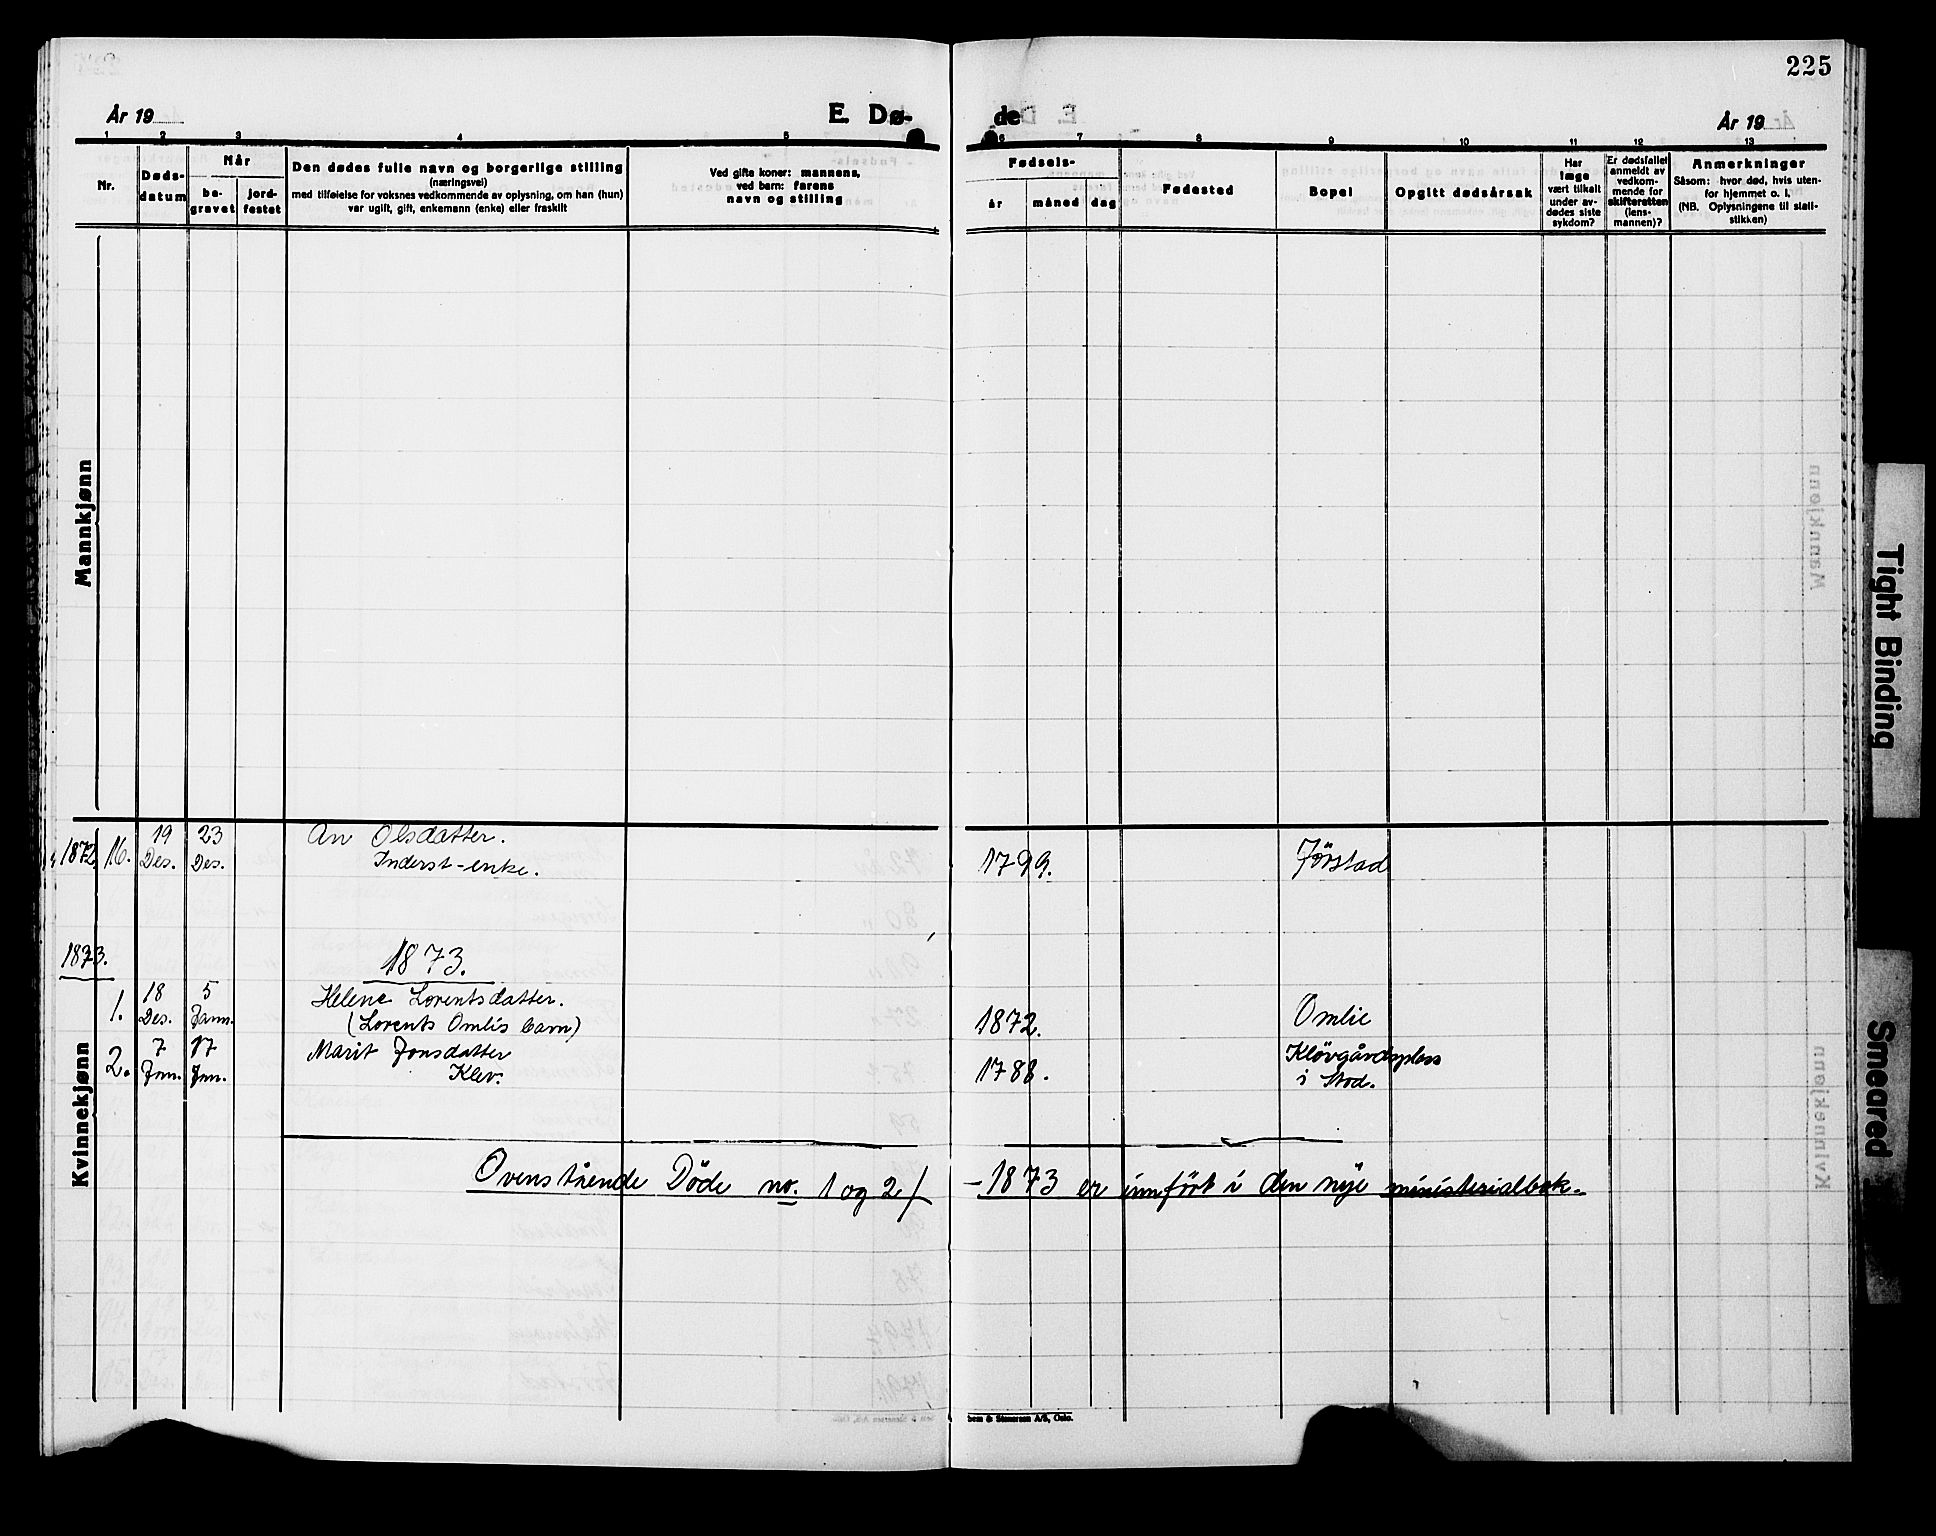 225
År 19
E. Dø-
de
År 19
1 2 3 4 5 6 7 8 9 10 11 12 13
Nr.
Døds-
datum
Når
be-
gravet
jord-
festet
Den dødes fulle navn og borgerlige stilling
(næringsvei)
med tilføielse for voksnes vedkommende av oplysning, om han (hun)
var ugift, gift, enkemann (enke) eller fraskilt
Ved gifte koner: mannens,
ved barn: farens
navn og stilling
Fødsels-
år måned dag
Fødested
Bopel
Opgitt dødsårsak
Har
læge
vært tilkalt
under av-
dødes siste
sykdom?
Er dødsfallet
anmeldt av
vedkom-
mende for
skifteretten
(lens-
mannen)?
Anmerkninger
Såsom: hvor død, hvis uten-
for hjemmet o. l.
(NB. Oplysningene til stall-
stikken)
Mannkjønn
Kvinnekjønn
1872 16. 19 Des. 23 Des. An Olsdatter.
Inderst-enke.
1799. Förstad
1873.
1873.
1. 18 Des. 5 Jann. Helene Lorentsdatter.
(Lorents Omlis barn)
1872. Omlie
2. 7 Jnn. 17 Jnn. Marit Jonsdatter
Klev.
1788. Klövgårdsplass
i Stod.
Ovenstående Döde no. 1 og 2/ - 1873 er innfört i den nye ministerialbok.
bem & Stenersen A/S, Oslo.
Tight Binding
Smeared